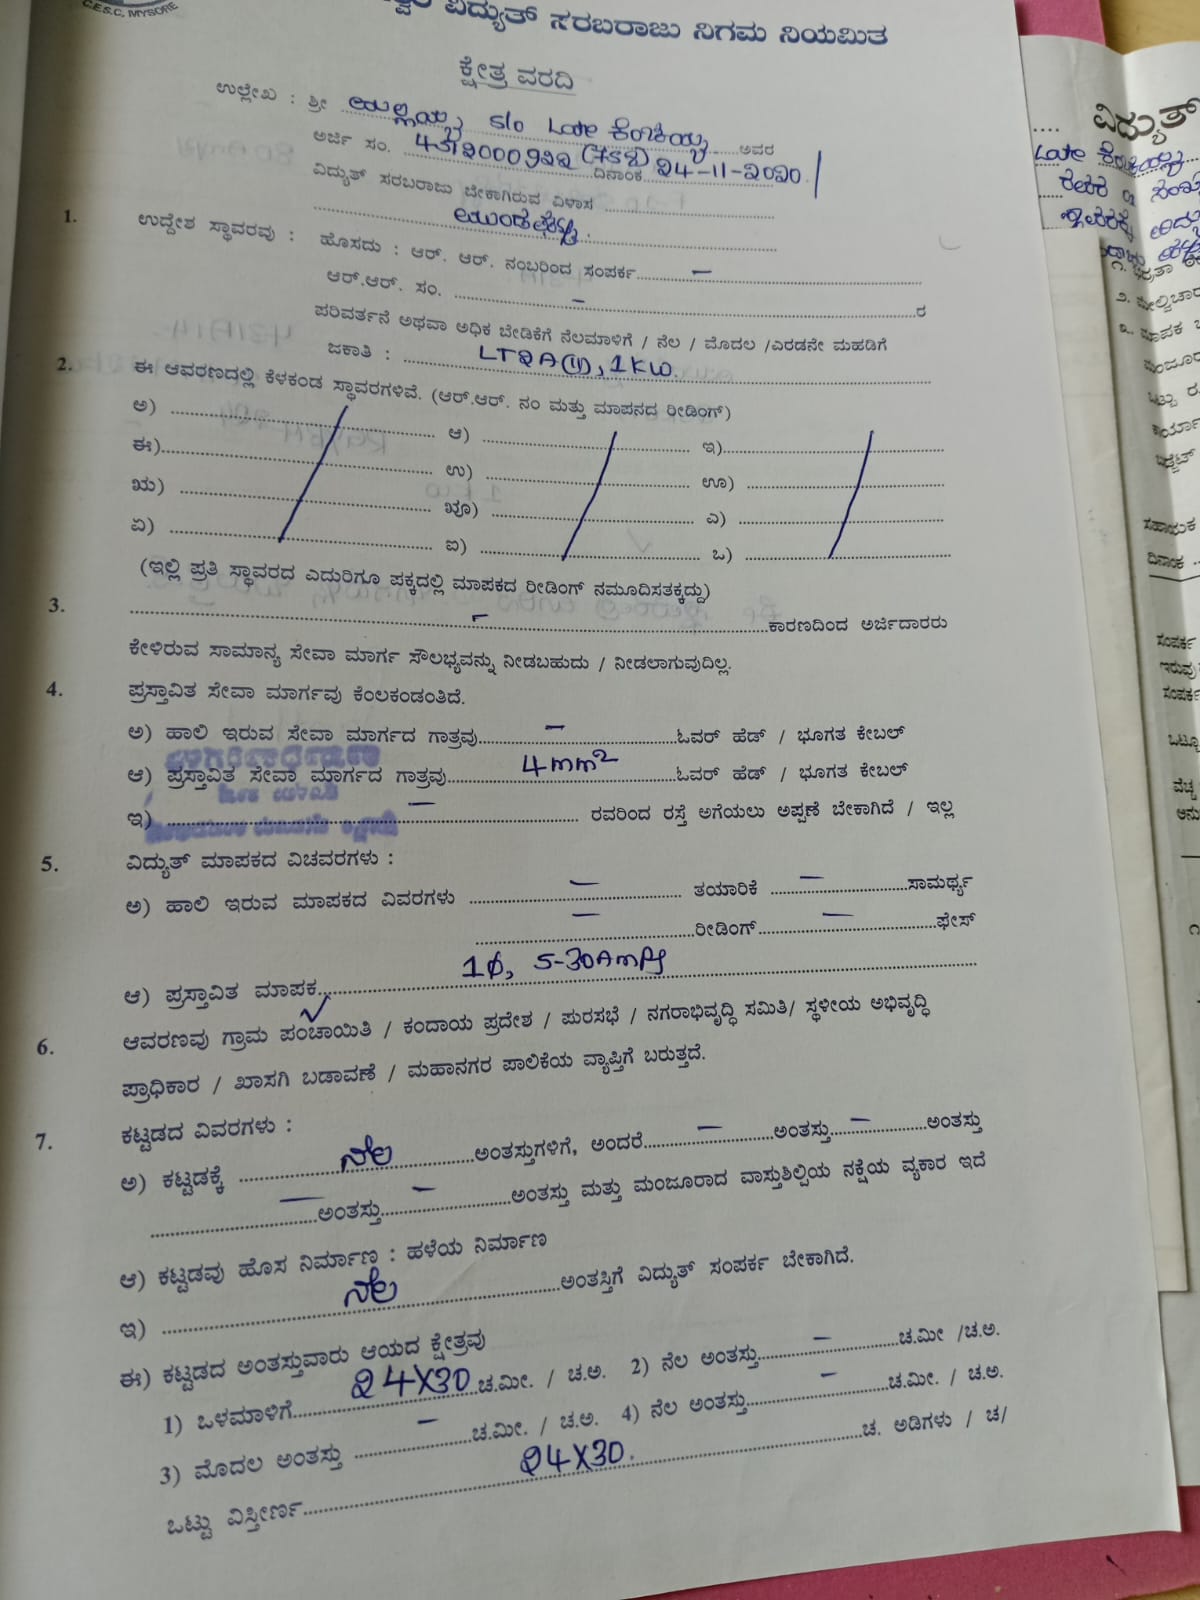 C.E.S.C, MYSORE
ವಿದ್ಯುತ್ ಸರಬರಾಜು ನಿಗಮ ನಿಯಮಿತ
ಕ್ಷೇತ್ರ ವರದಿ
ಉಲ್ಲೇಖ : ಶ್ರೀ ಯಲ್ಲಯ್ಯ S/o Late ಕೆಂಚಯ್ಯ ಅವರ
ಅರ್ಜಿ ಸಂ. ದಿನಾಂಕ 24-11-2020
ವಿದ್ಯುತ್ ಸರಬರಾಜು ಬೇಕಾಗಿರುವ ವಿಳಾಸ
1. ಉದ್ದೇಶ ಸ್ಥಾವರವು : ಹೊಸದು : ಆರ್. ಆರ್. ನಂಬರಿಂದ ಸಂಪರ್ಕ –
ಆರ್.ಆರ್. ಸಂ. – ರ
ಪರಿವರ್ತನೆ ಅಥವಾ ಅಧಿಕ ಬೇಡಿಕೆಗೆ ನೆಲಮಾಳಿಗೆ / ನೆಲ / ಮೊದಲ /ಎರಡನೇ ಮಹಡಿಗೆ
ಜಕಾತಿ : LT2A(ii), 1KW.
2. ಈ ಆವರಣದಲ್ಲಿ ಕೆಳಕಂಡ ಸ್ಥಾವರಗಳಿವೆ. (ಆರ್.ಆರ್. ನಂ ಮತ್ತು ಮಾಪನದ ರೀಡಿಂಗ್)
ಅ) ಆ) ಇ)
ಈ) ಉ) ಊ)
ಋ) ೠ) ಎ)
ಏ) ಐ) ಒ)
(ಇಲ್ಲಿ ಪ್ರತಿ ಸ್ಥಾವರದ ಎದುರಿಗೂ ಪಕ್ಕದಲ್ಲಿ ಮಾಪಕದ ರೀಡಿಂಗ್ ನಮೂದಿಸತಕ್ಕದ್ದು)
3. – ಕಾರಣದಿಂದ ಅರ್ಜಿದಾರರು
ಕೇಳಿರುವ ಸಾಮಾನ್ಯ ಸೇವಾ ಮಾರ್ಗ ಸೌಲಭ್ಯವನ್ನು ನೀಡಬಹುದು / ನೀಡಲಾಗುವುದಿಲ್ಲ.
4. ಪ್ರಸ್ತಾವಿತ ಸೇವಾ ಮಾರ್ಗವು ಕೆಂಲಕಂಡಂತಿದೆ.
ಅ) ಹಾಲಿ ಇರುವ ಸೇವಾ ಮಾರ್ಗದ ಗಾತ್ರವು – ಓವರ್ ಹೆಡ್ / ಭೂಗತ ಕೇಬಲ್
ಆ) ಪ್ರಸ್ತಾವಿತ ಸೇವಾ ಮಾರ್ಗದ ಗಾತ್ರವು 4mm² ಓವರ್ ಹೆಡ್ / ಭೂಗತ ಕೇಬಲ್
ಇ) – ರವರಿಂದ ರಸ್ತೆ ಅಗೆಯಲು ಅಪ್ಪಣೆ ಬೇಕಾಗಿದೆ / ಇಲ್ಲ
5. ವಿದ್ಯುತ್ ಮಾಪಕದ ವಿಚವರಗಳು :
ಅ) ಹಾಲಿ ಇರುವ ಮಾಪಕದ ವಿವರಗಳು – ತಯಾರಿಕೆ – ಸಾಮರ್ಥ್ಯ
– ರೀಡಿಂಗ್ – ಫೇಸ್
ಆ) ಪ್ರಸ್ತಾವಿತ ಮಾಪಕ 1ϕ, 5-30Amps
6. ಆವರಣವು ಗ್ರಾಮ ಪಂಚಾಯಿತಿ / ಕಂದಾಯ ಪ್ರದೇಶ / ಪುರಸಭೆ / ನಗರಾಭಿವೃದ್ಧಿ ಸಮಿತಿ/ ಸ್ಥಳೀಯ ಅಭಿವೃದ್ಧಿ
ಪ್ರಾಧಿಕಾರ / ಖಾಸಗಿ ಬಡಾವಣೆ / ಮಹಾನಗರ ಪಾಲಿಕೆಯ ವ್ಯಾಪ್ತಿಗೆ ಬರುತ್ತದೆ.
7. ಕಟ್ಟಡದ ವಿವರಗಳು :
ಅ) ಕಟ್ಟಡಕ್ಕೆ ನೆಲ ಅಂತಸ್ತುಗಳಿಗೆ, ಅಂದರೆ – ಅಂತಸ್ತು – ಅಂತಸ್ತು
– ಅಂತಸ್ತು – ಅಂತಸ್ತು ಮತ್ತು ಮಂಜೂರಾದ ವಾಸ್ತುಶಿಲ್ಪಿಯ ನಕ್ಷೆಯ ವ್ಯಕಾರ ಇದೆ
ಆ) ಕಟ್ಟಡವು ಹೊಸ ನಿರ್ಮಾಣ : ಹಳೆಯ ನಿರ್ಮಾಣ
ಇ) ನೆಲ ಅಂತಸ್ತಿಗೆ ವಿದ್ಯುತ್ ಸಂಪರ್ಕ ಬೇಕಾಗಿದೆ.
ಈ) ಕಟ್ಟಡದ ಅಂತಸ್ತುವಾರು ಆಯದ ಕ್ಷೇತ್ರವು
1) ಒಳಮಾಳಿಗೆ 24X30 ಚ.ಮೀ. / ಚ.ಅ. 2) ನೆಲ ಅಂತಸ್ತು – ಚ.ಮೀ /ಚ.ಅ.
3) ಮೊದಲ ಅಂತಸ್ತು – ಚ.ಮೀ. / ಚ.ಅ. 4) ನೆಲ ಅಂತಸ್ತು – ಚ.ಮೀ. / ಚ.ಅ.
ಒಟ್ಟು ವಿಸ್ತೀರ್ಣ 24X30. ಚ. ಅಡಿಗಳು / ಚ/
ವಿದ್ಯುತ್
Late
೨. ಮೇಲ್ವಿಚಾರ
ಸಹಾಯಕ
ದಿನಾಂಕ
ಸಂಪರ್ಕ
ಇರುವು
ಸಂಪರ್ಕ
ವೆಚ್ಚ